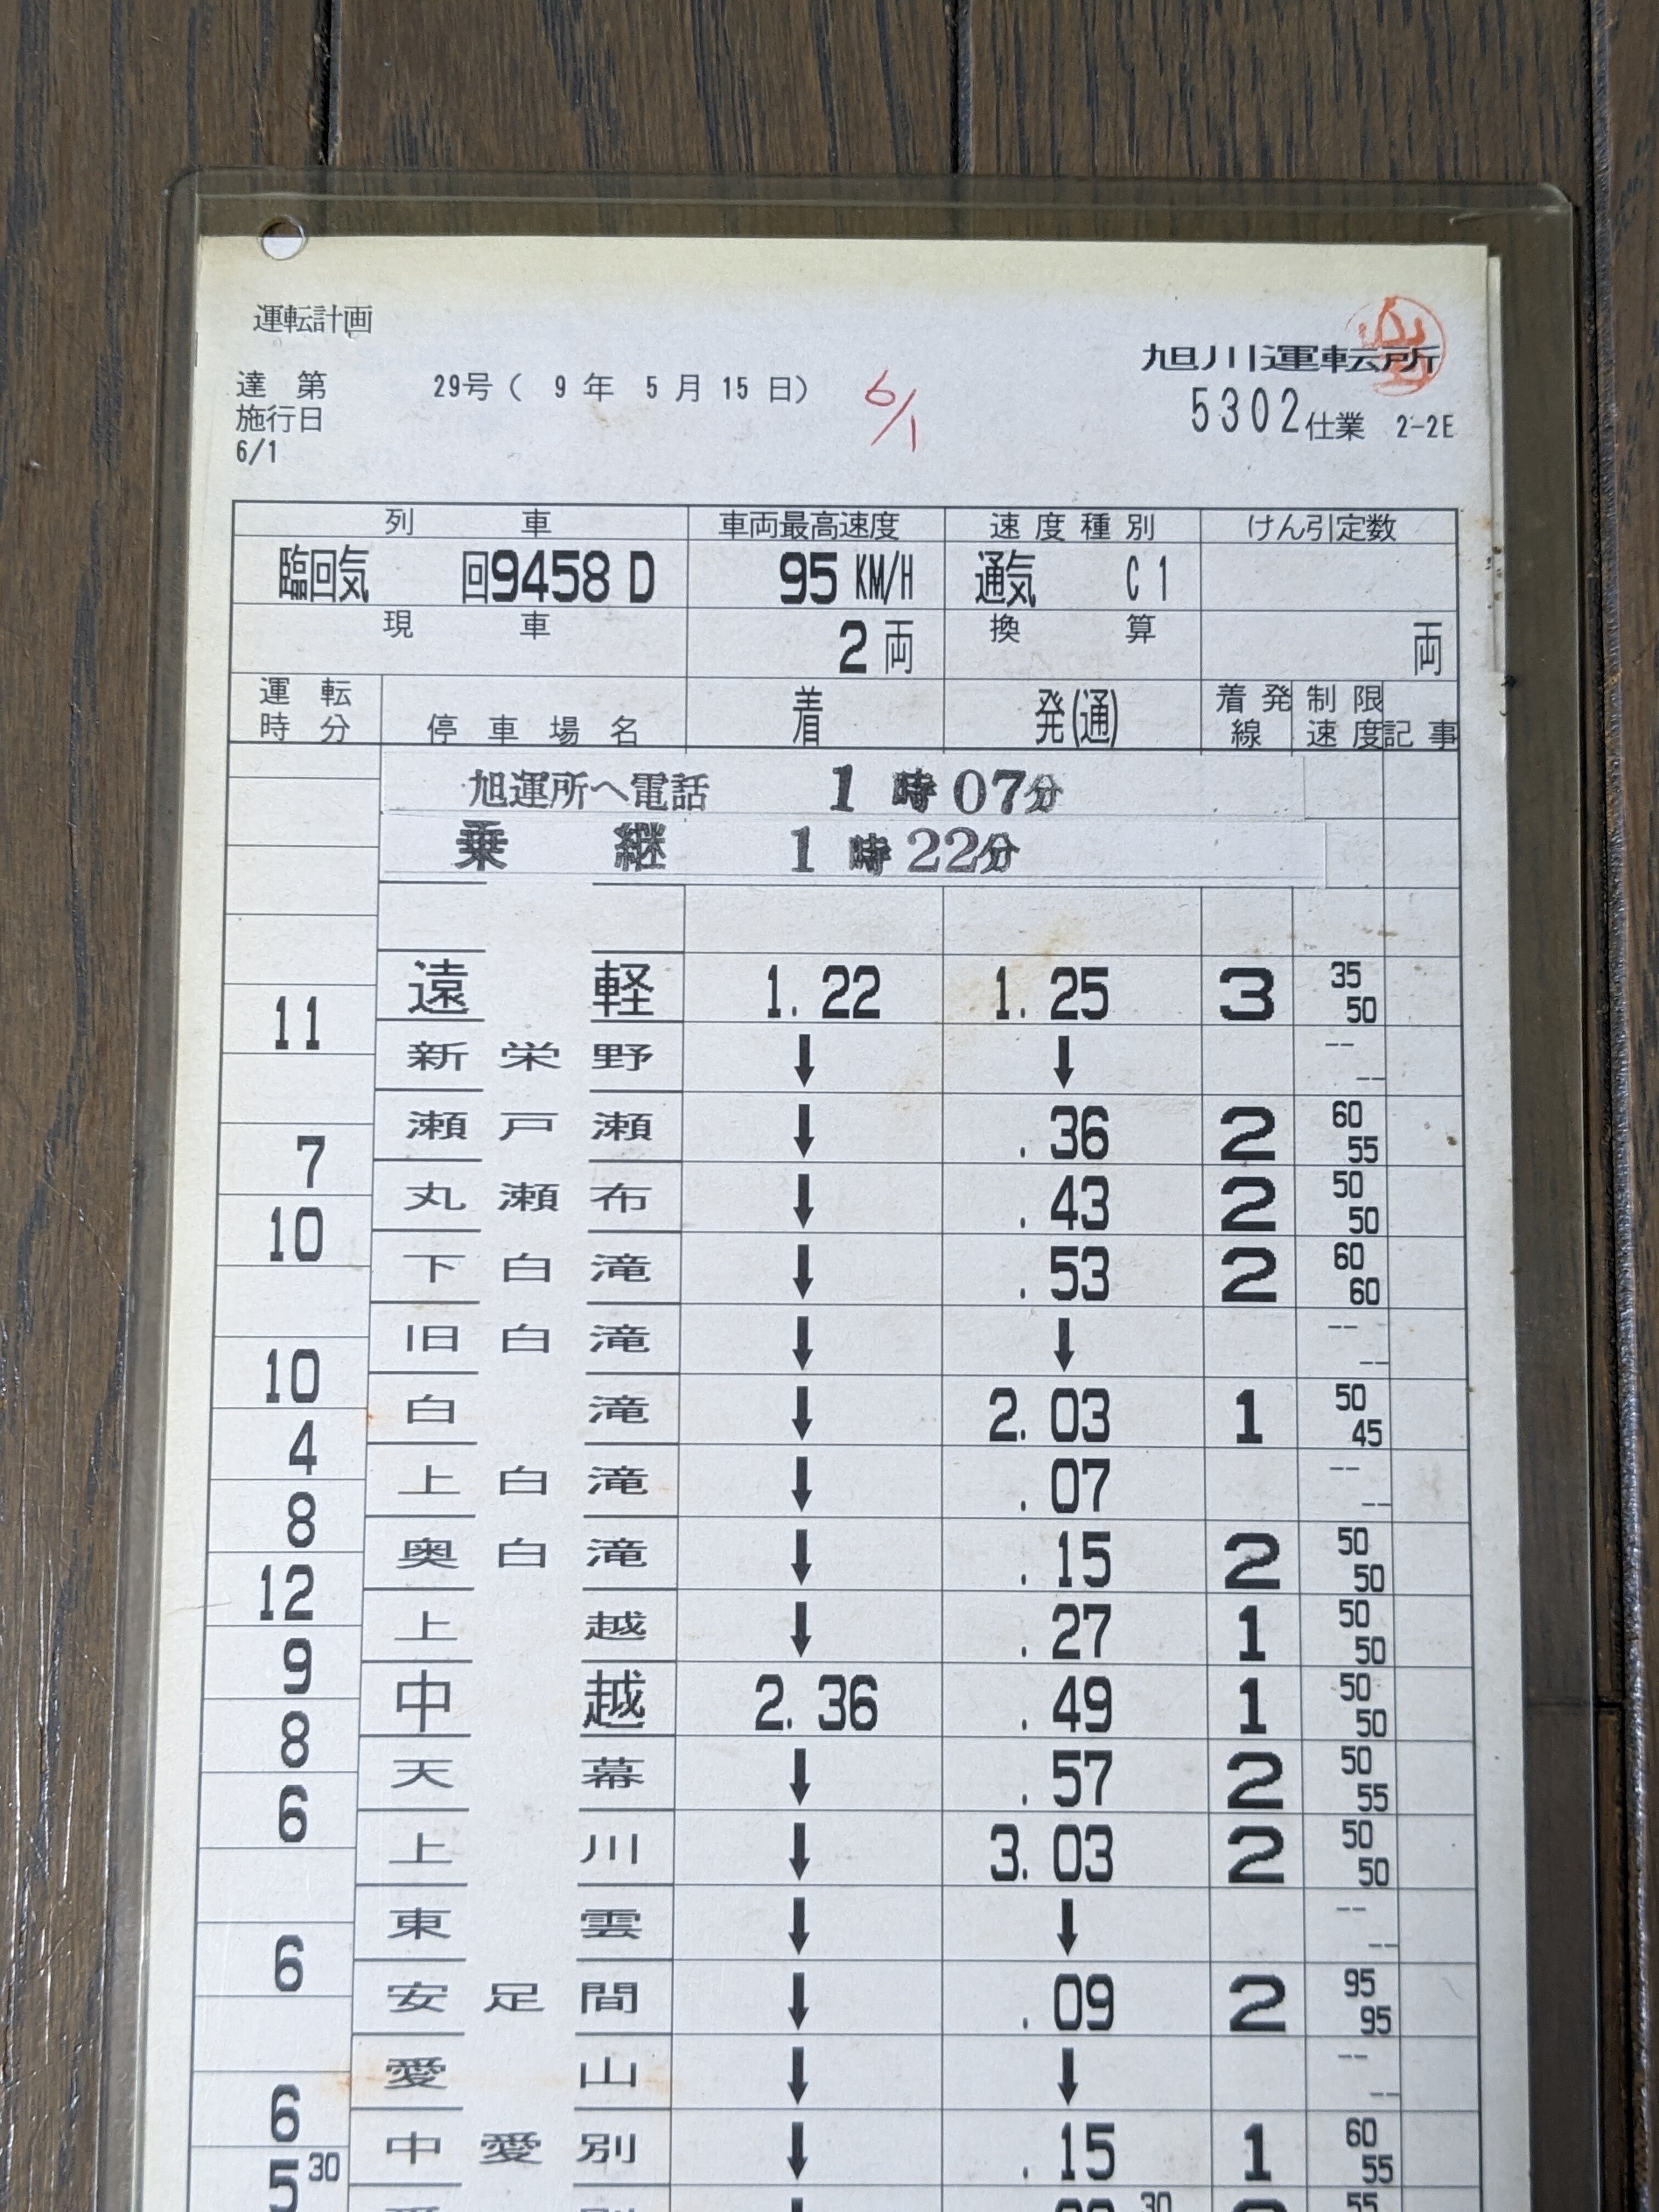 運転計画
旭川運転所
達 第 29号( 9 年 5 月 15 日)
6/1
5302仕業 2-2E
施行日
6/1
列 車 車両最高速度 速度種別 けん引定数
臨回気 回9458 D 95 KM/H 通気 C 1
現 車 2両 換 算 両
運転時分 停車場名 着 発(通) 着発線 制限速度 記事
旭運所へ電話 1 時 07分
乗 継 1 時 22分
遠 軽 1. 22 1. 25 3 35 50
11
新 栄 野 ↓ ↓ -- --
瀬 戸 瀬 ↓ . 36 2 60 55
7
丸 瀬 布 ↓ . 43 2 50 50
10
下 白 滝 ↓ . 53 2 60 60
旧 白 滝 ↓ ↓ -- --
10
白 滝 ↓ 2. 03 1 50 45
4
上 白 滝 ↓ . 07 -- --
8
奥 白 滝 ↓ . 15 2 50 50
12
上 越 ↓ . 27 1 50 50
9
中 越 2. 36 . 49 1 50 50
8
天 幕 ↓ . 57 2 50 55
6
上 川 ↓ 3. 03 2 50 50
東 雲 ↓ ↓ -- --
6
安 足 間 ↓ . 09 2 95 95
愛 山 ↓ ↓ -- --
6
中 愛 別 ↓ . 15 1 60 55
5 30
30 55